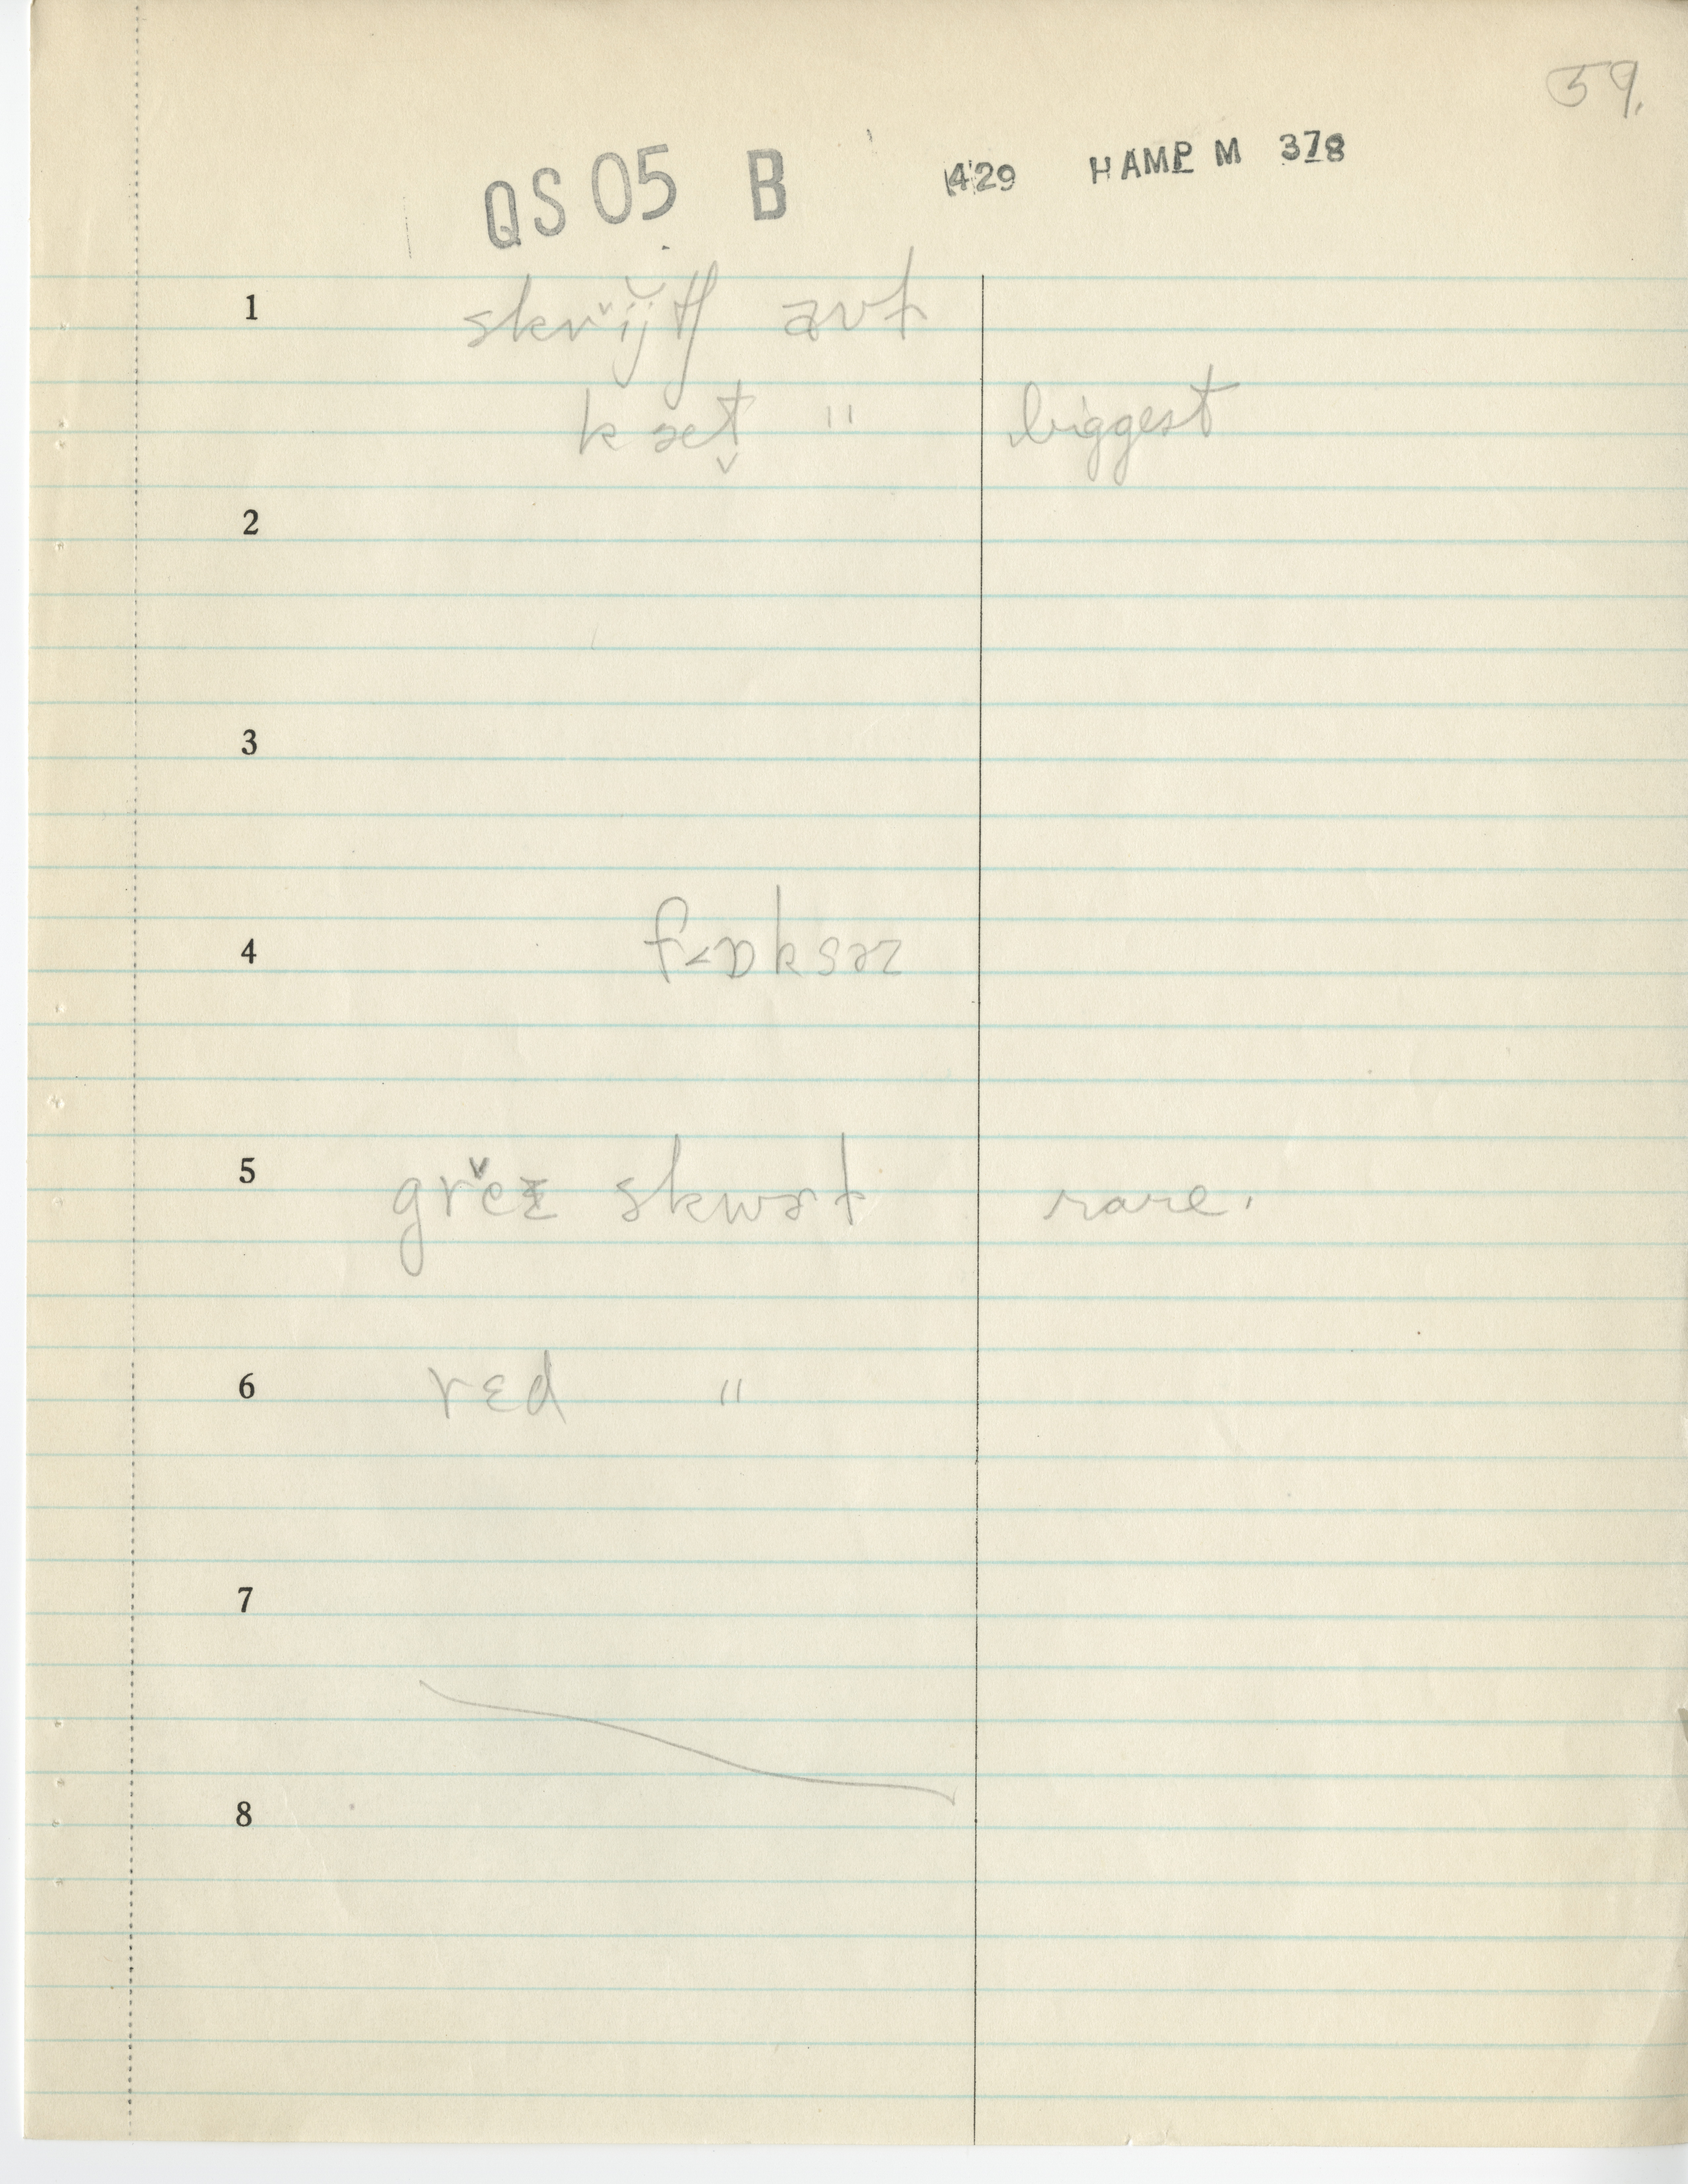 59.
QS 05 B 429 HAMP M 378
1 skrˇĭjtʃ aʊt
kæt̬ " biggest
2
3
4 f˂ɒksəz
5 grˇeɪ skwət rare.
6 rɛd "
7
8